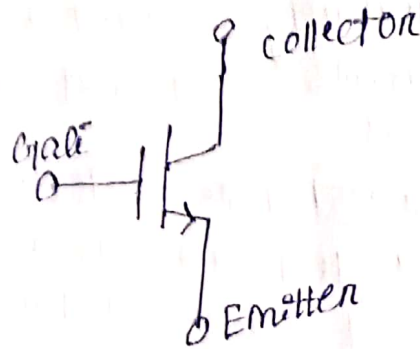 collector
Gate
Emitter